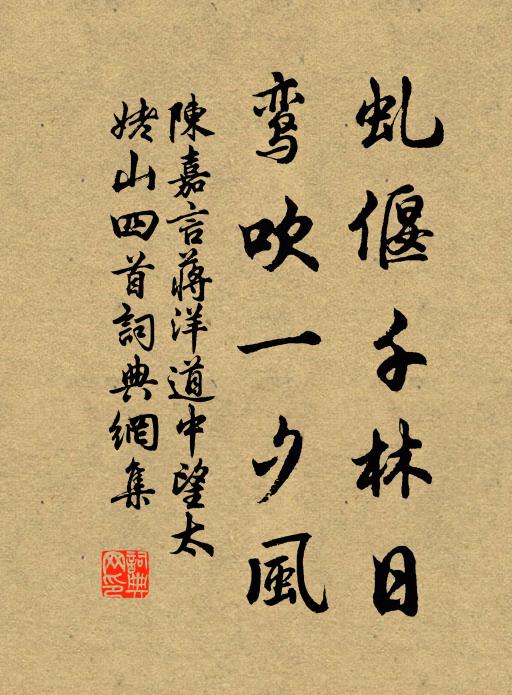 虬偃千林日
鸾吹一夕風
陳嘉言蔣洋道中望太
姥山四首詞典網集
詞典
网印